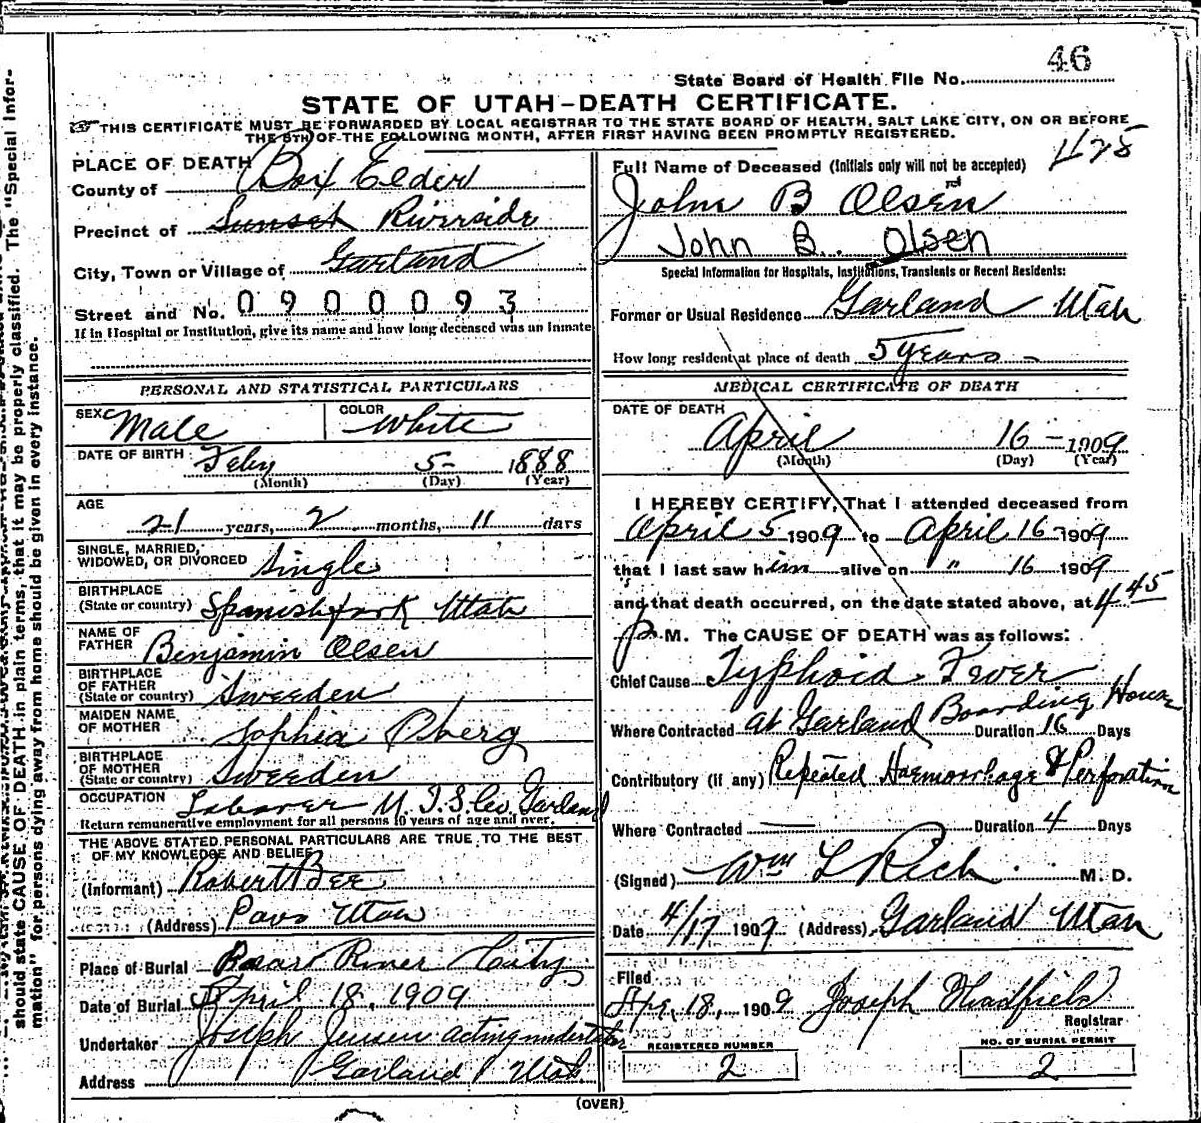 46
State Board of Health File No.
STATE OF UTAH-DEATH CERTIFICATE.
THIS CERTIFICATE MUST BE FORWARDED BY LOCAL REGISTRAR TO THE STATE BOARD OF HEALTH, SALT LAKE CITY, ON OR BEFORE
THE 5TH OF THE FOLLOWING MONTH, AFTER FIRST HAVING BEEN PROMPTLY REGISTERED.
should state CAUSE OF DEATH in plain terms, that it may be properly classified. The "Special Infor-
mation" for persons dying away from home should be given in every instance.
PLACE OF DEATH
County of Box Elder
Precinct of Sunset Riverside
City, Town or Village of Garland
Street and No. 0900093
If in Hospital or Institution, give its name and how long deceased was an Inmate
PERSONAL AND STATISTICAL PARTICULARS
SEX Male COLOR White
DATE OF BIRTH Feby 5- 1888
(Month) (Day) (Year)
AGE
21 years, 2 months, 11 days
SINGLE, MARRIED,
WIDOWED, OR DIVORCED Single
BIRTHPLACE
(State or country) Spanish fork Utah
NAME OF
FATHER Benjamin Olsen
BIRTHPLACE
OF FATHER
(State or country) Sweeden
MAIDEN NAME
OF MOTHER Sophia Oberg
BIRTHPLACE
OF MOTHER
(State or country) Sweeden
OCCUPATION Laborer U. I. S. Co. Garland
Return remunerative employment for all persons 10 years of age and over.
THE ABOVE STATED PERSONAL PARTICULARS ARE TRUE TO THE BEST
OF MY KNOWLEDGE AND BELIEF
(Informant) Robert Bee
(Address) Pavo Utah
Place of Burial Bear River City
Date of Burial April 18, 1909
Undertaker Joseph Jensen acting undertaker
Address Garland Utah
428
Full Name of Deceased (Initials only will not be accepted)
John B Olsen
John B. Olsen
Special Information for Hospitals, Institutions, Transients or Recent Residents:
Former or Usual Residence Garland Utah
How long resident at place of death 5 years -
MEDICAL CERTIFICATE OF DEATH
DATE OF DEATH
April 16 - 1909
(Month) (Day) (Year)
I HEREBY CERTIFY, That I attended deceased from
April 5 1909 to April 16 1909
that I last saw him alive on " 16 1909
and that death occurred, on the date stated above, at 4 45
p M. The CAUSE OF DEATH was as follows:
Chief Cause Typhoid Fever
Where Contracted at Garland Boarding House Duration 16 Days
Contributory (if any) Repeated Haemorrhage & Perforation
Where Contracted — Duration 4 Days
(Signed) Wm L Rich M. D.
Date 4/17 1909 (Address) Garland Utah
Filed
Apr. 18, 1909 Joseph Hadfield
Registrar
REGISTERED NUMBER
2
NO. OF BURIAL PERMIT
2
(OVER)